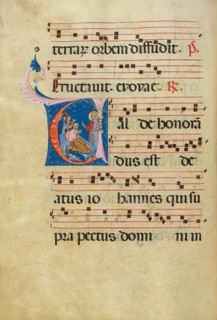 terraꝝ orbem diffudit. ℣.
Eructauit. euouae. ℟.
Ualde honorā
dus est be
atus io hannes qui su
pra pectus domi ni in